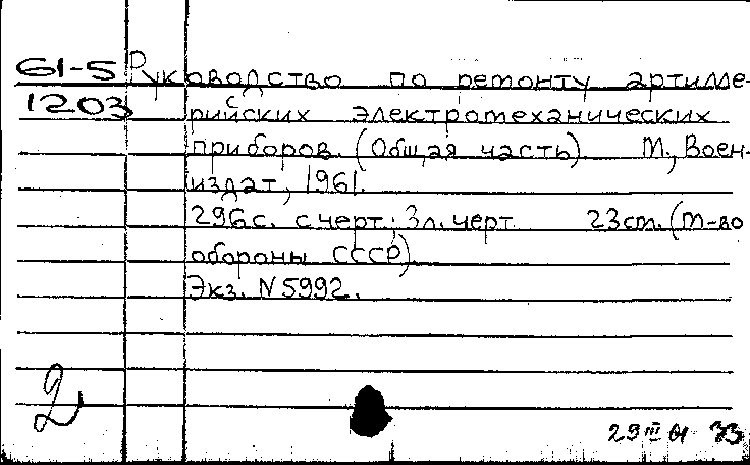 61-5 Руководство по ремонту артилле-
1203 рийских электромеханических
приборов. (Общая часть) М., Воен-
издат, 1961.
296с. с черт; 3л. черт 23cm. (М-во
обороны СССР)
Экз. N5992.
2
29 III 61